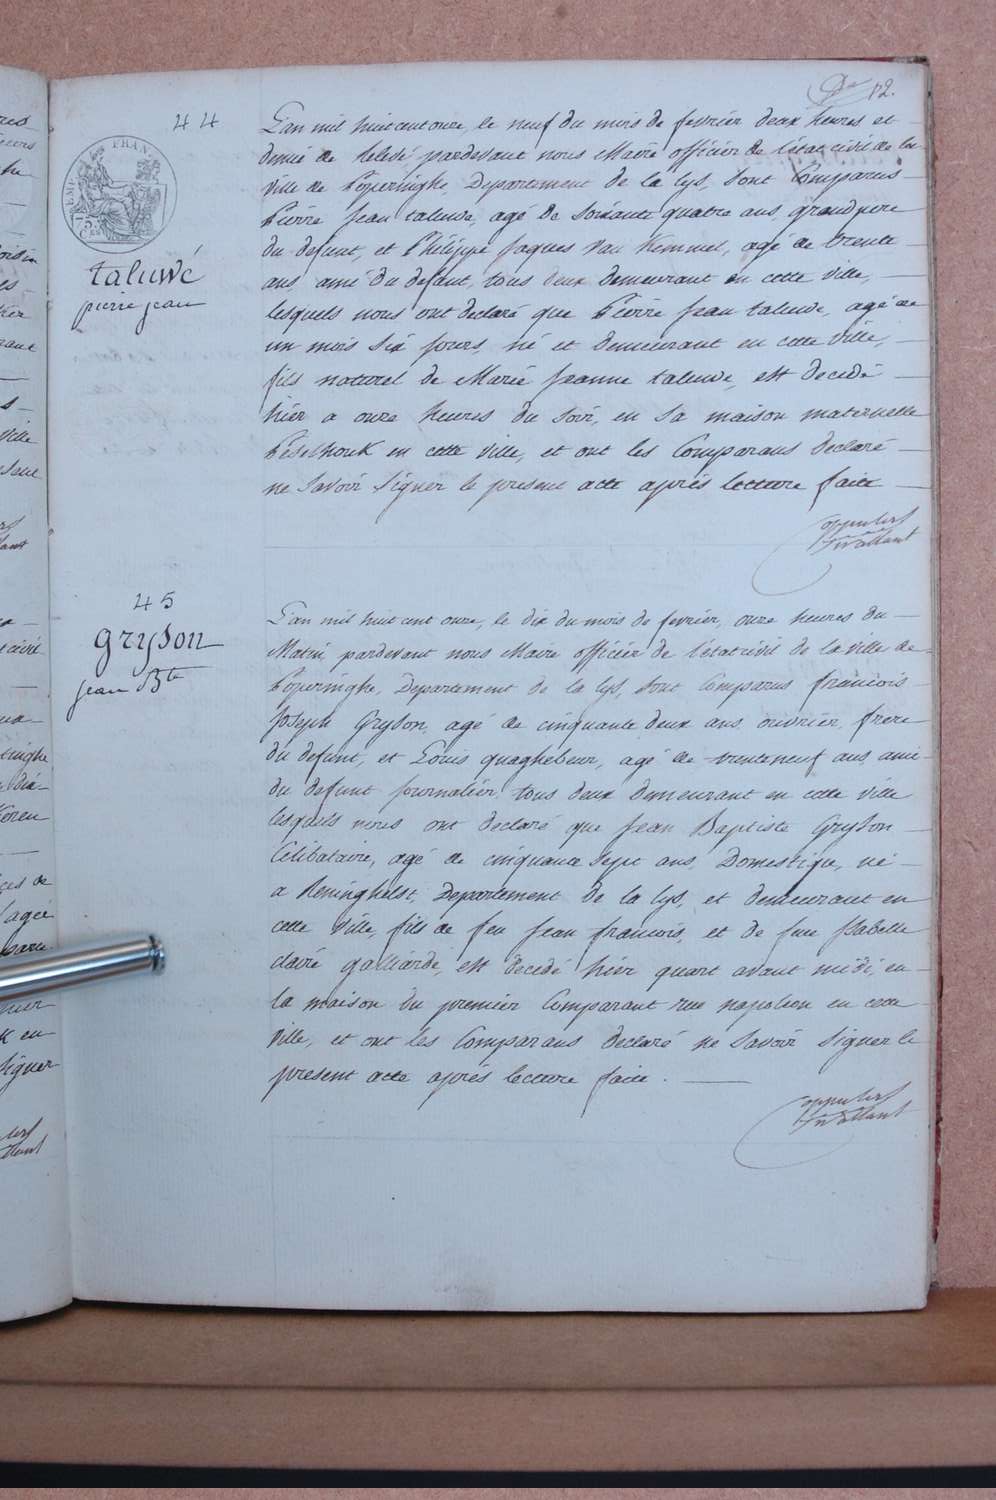 12.
44
taluwé
pierre jean
L'an mil huit cent onze, le neuf du mois de fevrier deux heures et
demie de relevé pardevant nous Maire officier de l'état civil de la
ville de Poperinghe, Departement de la Lys, sont Comparus
Pierre Jean taluwe, agé de soixante quatre ans, grand pere
du defunt, et Philippe Jaques Van Kemmel, agé de trente
ans ami du defunt, tous deux demeurant en cette ville,
lesquels nous ont declaré que Pierre Jean taluwe, agé de
un mois six jours, né et demeurant en cette ville,
fils naturel de Marie Jeanne taluwe, est decedé
hier a onze heures du soir, en sa maison maternelle
Peselhouk en cette ville, et ont les Comparans declaré
ne savoir signer le present acte aprés lecture faite
45
Gryson
jean Bte
L'an mil huit cent onze, le dix du mois de fevrier, onze heures du
Matin, pardevant nous Maire officier de l'état civil de la ville de
Poperinghe, Departement de la Lys, sont Comparus francois
Joseph Gryson, agé de cinquante deux ans, ouvrier, frere
du defunt, et Louis quaghebeur, agé de trente neuf ans, ami
du defunt journalier, tous deux demeurant en cette ville
lesquels nous ont declaré que Jean Baptiste Gryson
Celibataire, agé de cinquante sept ans, Domestique, né
a Reninghelst, Departement de la Lys, et demeurant en
cette ville, fils de feu Jean francois, et de feue Isabelle
claire galliarde, est decedé hier quart avant midi, en
la maison du premier Comparant rue napoleon en cette
ville, et ont les Comparans declaré ne savoir signer le
present acte aprés lecture faite.